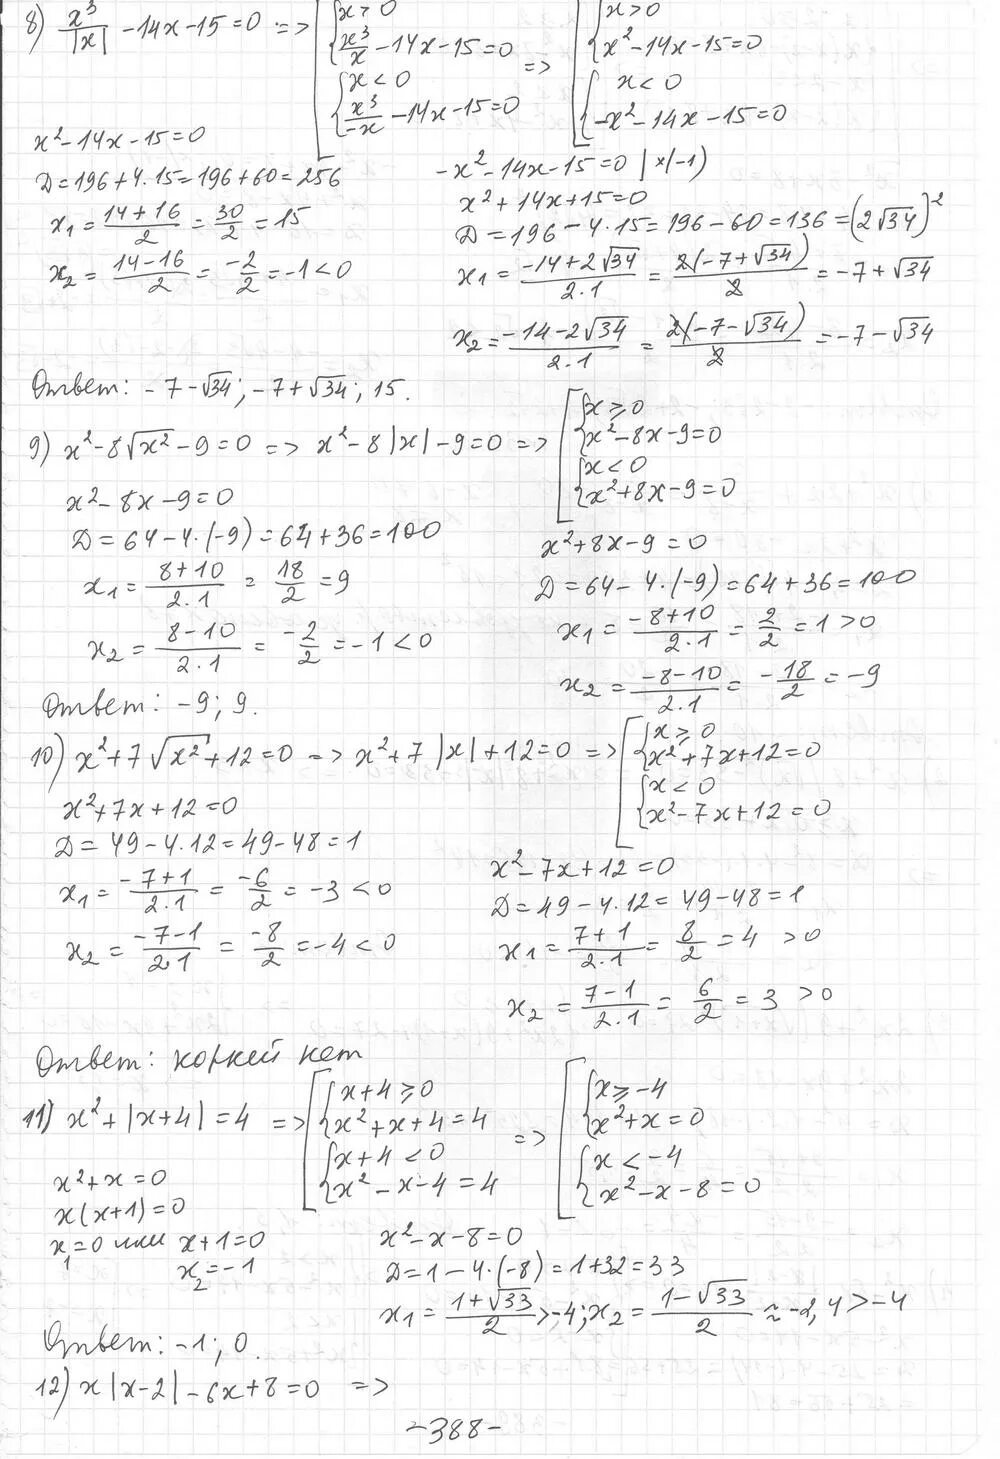 8) x³/|x| - 14x - 15 = 0 => [ { x > 0 ; x³/x - 14x - 15 = 0 ; { x < 0 ; x³/-x - 14x - 15 = 0 => [ { x > 0 ; x² - 14x - 15 = 0 ; { x < 0 ; -x² - 14x - 15 = 0
x² - 14x - 15 = 0
D = 196 + 4·15 = 196 + 60 = 256
x₁ = (14+16)/2 = 30/2 = 15
x₂ = (14-16)/2 = -2/2 = -1 < 0
-x² - 14x - 15 = 0 | ×(-1)
x² + 14x + 15 = 0
D = 196 - 4·15 = 196 - 60 = 136 = (2√34)²
x₁ = (-14+2√34)/(2·1) = 2(-7+√34)/2 = -7+√34
x₂ = (-14-2√34)/(2·1) = 2(-7-√34)/2 = -7-√34
Ответ: -7-√34; -7+√34; 15.
9) x² - 8√x² - 9 = 0 => x² - 8|x| - 9 = 0 => [ { x ≥ 0 ; x² - 8x - 9 = 0 ; { x < 0 ; x² + 8x - 9 = 0
x² - 8x - 9 = 0
D = 64 - 4·(-9) = 64 + 36 = 100
x₁ = (8+10)/(2·1) = 18/2 = 9
x₂ = (8-10)/(2·1) = -2/2 = -1 < 0
x² + 8x - 9 = 0
D = 64 - 4·(-9) = 64 + 36 = 100
x₁ = (-8+10)/(2·1) = 2/2 = 1 > 0
x₂ = (-8-10)/(2·1) = -18/2 = -9
Ответ: -9; 9.
10) x² + 7√x² + 12 = 0 => x² + 7|x| + 12 = 0 => [ { x ≥ 0 ; x² + 7x + 12 = 0 ; { x < 0 ; x² - 7x + 12 = 0
x² + 7x + 12 = 0
D = 49 - 4·12 = 49 - 48 = 1
x₁ = (-7+1)/(2·1) = -6/2 = -3 < 0
x₂ = (-7-1)/(2·1) = -8/2 = -4 < 0
x² - 7x + 12 = 0
D = 49 - 4·12 = 49 - 48 = 1
x₁ = (7+1)/(2·1) = 8/2 = 4 > 0
x₂ = (7-1)/(2·1) = 6/2 = 3 > 0
Ответ: корней нет
11) x² + |x+4| = 4 => [ { x+4 ≥ 0 ; x² + x + 4 = 4 ; { x+4 < 0 ; x² - x - 4 = 4 => [ { x ≥ -4 ; x² + x = 0 ; { x < -4 ; x² - x - 8 = 0
x² + x = 0
x(x+1) = 0
x₁ = 0 или x+1 = 0
x₂ = -1
x² - x - 8 = 0
D = 1 - 4·(-8) = 1 + 32 = 33
x₁ = (1+√33)/2 > -4; x₂ = (1-√33)/2 ≈ -2,4 > -4
Ответ: -1; 0.
12) x|x-2| - 6x + 8 = 0 =>
-388-